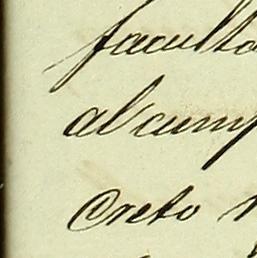 faculta
al cump
creto